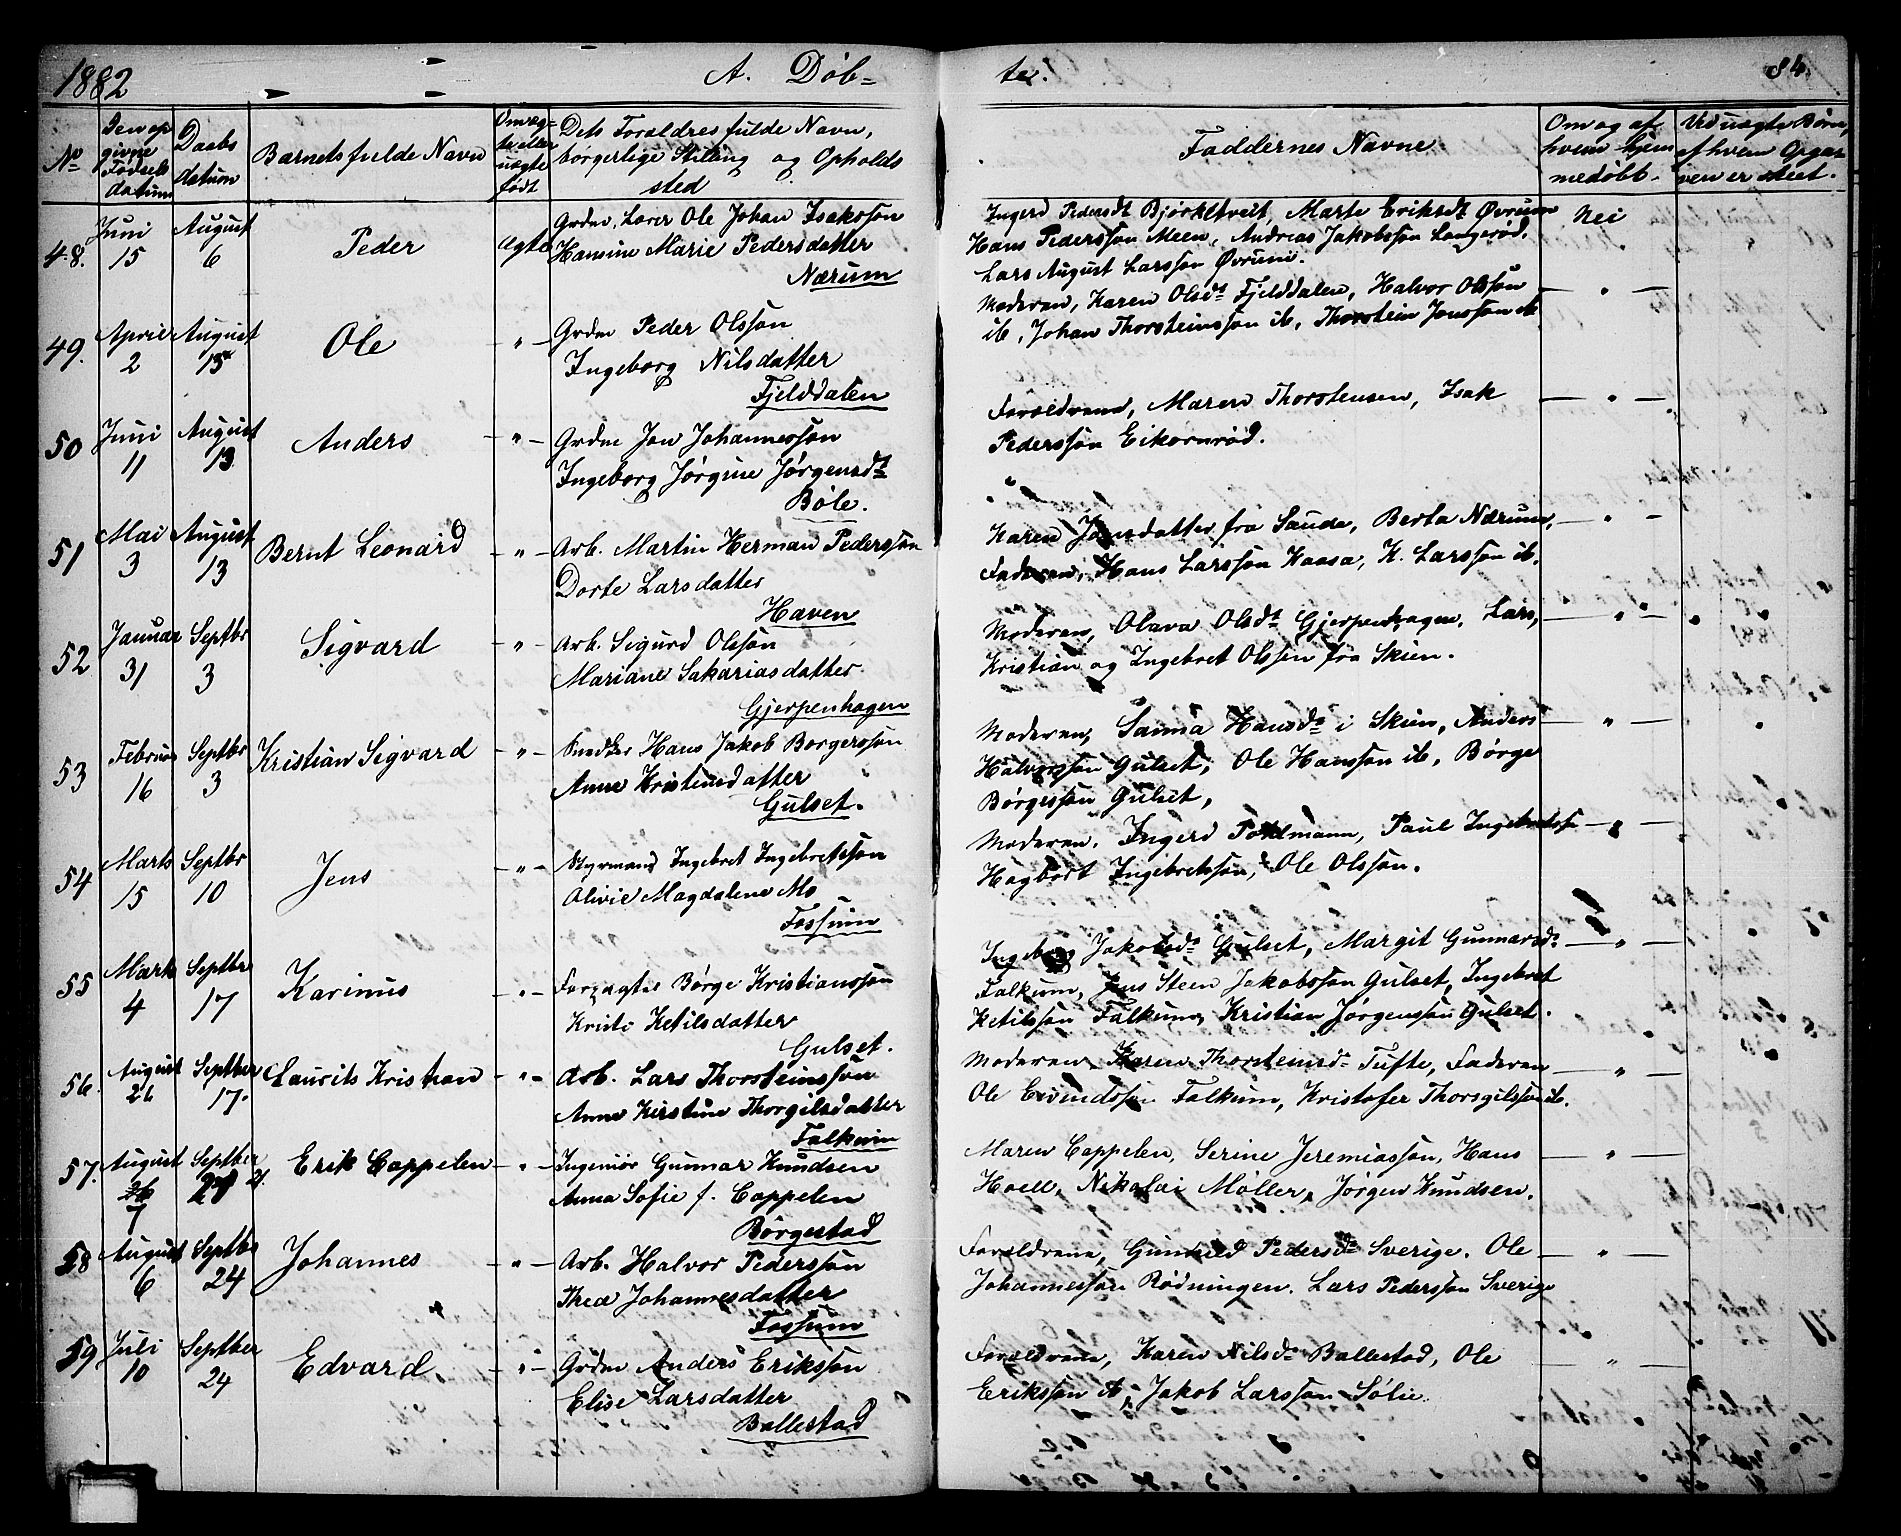 1882 A. Døb- te. 84.
No
Den op givne Fødsels datum
Daabs datum
Barnets fulde Navn
Om ægte eller uægte født
Dets Forældres fulde Navn, borgerlige Stilling og Opholds sted
Faddernes Navne
Om og af hvem hjemmedøbt.
Ved uægte Børn, af hvem Opgaven er skeet.
48. Juni 15 August 6 Peder ægte
Grdm, Lærer Ole Johan Isaksson
Hansine Marie Pedersdatter
Nærum
Ingerd Pedersdt Bjørktveit, Marte Eriksdt Øvrum
Hans Pedersson Meen, Andreas Jakobsson Langerød,
Lars August Larsson Øvrum.
Nei
49. April 2 August 13 Ole - " -
Grdm Peder Olsson
Ingeborg Nilsdatter
Fjelddalen
Moderen, Karen Olsdt Fjelddalen, Halvor Olsson
ib, Johan Thorsteinsson ib, Thorstein Jonsson ib
- " -
50 Juni 11 August 13 Anders - " -
Grdm Jon Johannesson
Ingeborg Jørgine Jørgensdt
Bøle.
Forældrene, Maren Thorstensen, Isak
Pedersson Eikornrød.
- " -
51 Mai 3 August 13 Bernt Leonard - " -
Arb. Martin Herman Pedersson
Dorte Larsdatter
Haven
Karen Jonsdatter fra Saude, Berta Nærum,
Faderen, Hans Larsson Kaasa, K. Larsson ib.
- " -
52 Januar 31 Septbr 3 Sigvard - " -
Arb. Sigurd Olsson
Mariane Sakariasdatter
Gjerpenhagen
Moderen, Olava Olsdt Gjerpenhagen, Lars,
Kristian og Ingebret Olssen fra Skien.
- " -
53 Februar 16 Septbr 3 Kristian Sigvard - " -
Snedker Hans Jakob Borgersson
Anne Kristensdatter
Gulset.
Moderen, Sanna Hansdt i Skien, Anders
Halvorsson Gulset, Ole Hansson ib, Børge
Børgesson Gulset,
- " -
54 Marts 15 Septbr 10 Jens - " -
Styrmand Ingebret Ingebretsson
Olivie Magdalene Mo
Fossum
Moderen, Ingerd Poldmann, Paul Ingebretss
Hagbart Ingebretsson, Ole Olsson.
- " -
55 Marts 4 Septber 17 Karinus - " -
Forpagter Børge Kristiansson
Kristi Ketilsdatter
Gulset.
Ingeborg Jakobsdt Gulset, Margit Gunnarsdt
Falkum, Jens Steen Jakobsson Gulset, Ingebret
Ketilsson Falkum, Kristian Jørgensson Gulset.
- " -
56. August 26 Septber 17. Laurits Kristian - " -
Arb. Lars Thorsteinsson
Anne Kirstine Thorgilsdatter
Falkum
Moderen, Karen Thorsteinsdt Tufte, Faderen
Ole Eivindssen Falkum, Kristofer Thorgilsson ib.
- " -
57. August 7 Septber 21 Erik Cappelen - " -
Ingeniør Gunnar Knudsen
Anna Sofie f. Cappelen
Børgestad
Maren Cappelen, Serine Jeremiasson, Hans
Hoell, Nikolai Møller, Jørgen Knudsen.
- " -
58 August 6 Septbr 24 Johannes - " -
Arb. Halvor Pedersson
Thea Johannesdatter
Fossum
Forældrene, Gunhild Pedersdt Sverige, Ole
Johannesson Rødningen, Lars Pedersson Sverige
- " -
59 Juli 10 Septber 24 Edvard. - " -
Grdm Anders Eriksson
Elise Larsdatter
Ballestad
Forældrene, Karen Nilsdt Ballestad, Ole
Eriksson ib, Jakob Larsson Sølie.
- " -